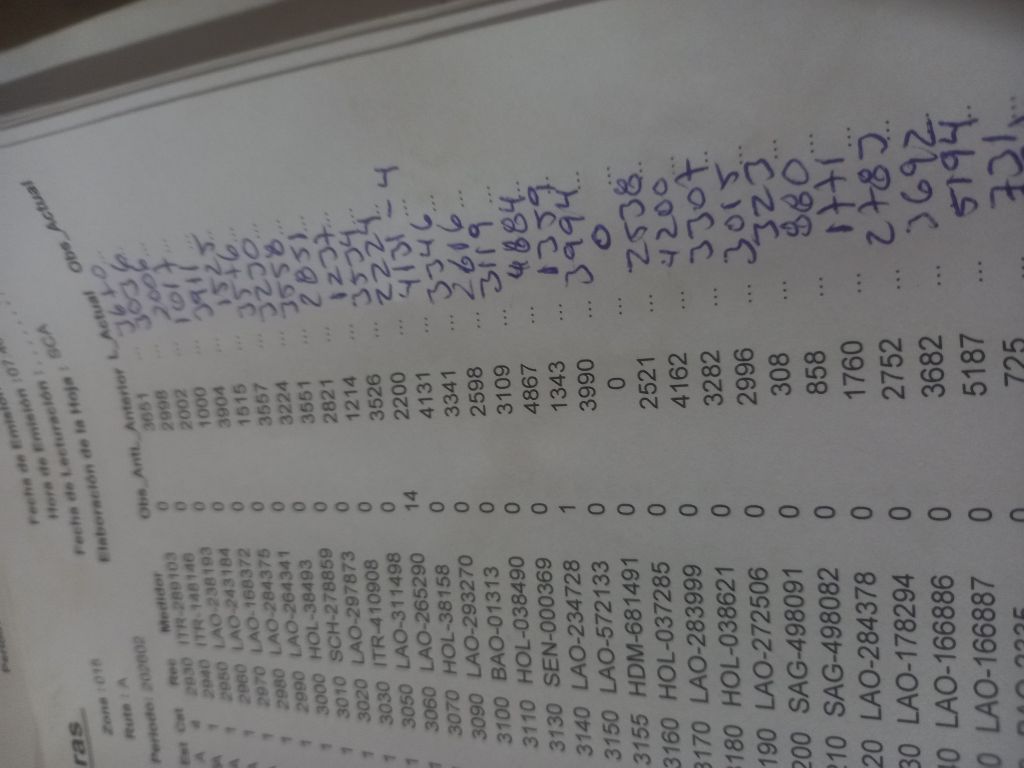 Fecha de Emisión :07
Hora de Emisión :
Fecha de Lecturación :
Elaboración de la Hoja : SCA
ras
Zona :018
Ruta : A
Periodo: 202002
Est Cat Sec Medidor Obs_Ant. Anterior L_Actual Obs_Actual
3651
2930 ITR-289103 0 2998 ... 3036...
2940 ITR-148146 0 2002 ... 2006...
1 2950 LAO-238193 0 1000 ... 1017...
1 2960 LAO-243184 0 3904 ... 3911...
1 2970 LAO-168372 0 1515 ... 1525...
1 2980 LAO-284375 0 3557 ... 3576...
1 2990 LAO-264341 0 3224 ... 3230...
1 3000 HOL-38493 0 3551 ... 3558...
1 3010 SCH-278859 0 2821 ... 2851...
1 3020 LAO-297873 0 1214 ... 1237...
1 3030 ITR-410908 0 3526 ... 3534...
1 3050 LAO-311498 0 2200 ... 2224...
3060 LAO-265290 14 4131 ... 4131-4
3070 HOL-38158 0 3341 ... 3346...
3090 LAO-293270 0 2598 ... 2616...
3100 BAO-01313 0 3109 ... 3119...
3110 HOL-038490 0 4867 ... 4884...
3130 SEN-000369 0 1343 ... 1359...
3140 LAO-234728 1 3990 ... 3994...
3150 LAO-572133 0 0 ... 0
3155 HDM-681491 0 2521 ... 2538...
3160 HOL-037285 0 4162 ... 4200...
3170 LAO-283999 0 3282 ... 3307...
3180 HOL-038621 0 2996 ... 3015...
190 LAO-272506 0 308 ... 323...
200 SAG-498091 0 858 ... 880...
210 SAG-498082 0 1760 ... 1771...
20 LAO-284378 0 2752 ... 2783...
30 LAO-178294 0 3682 ... 3692...
40 LAO-166886 0 5187 ... 5194...
0 LAO-166887 0 725 ... 731...